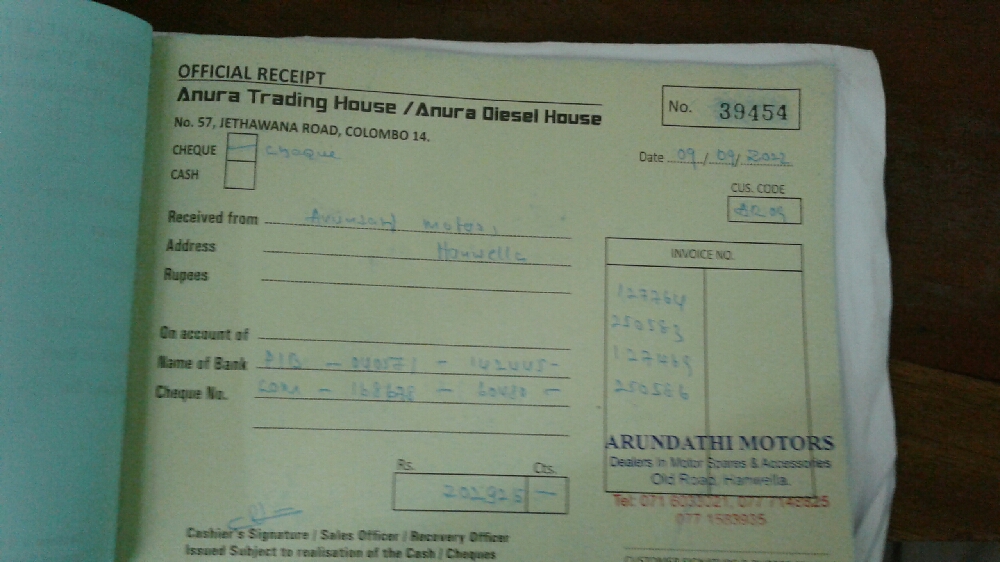 OFFICIAL RECEIPT
Anura Trading House / Anura Diesel House
No. 39454
No. 57, JETHAWANA ROAD, COLOMBO 14.
CHEQUE cheque
Date 09/09/2022
CASH
CUS. CODE
Received from Motors,
Address Hanwella
INVOICE NO.
Rupees
127764
250583
On account of
127469
Name of Bank - 142445-
250586
Cheque No. COM - 168678 - 60480 -
ARUNDATHI MOTORS
Dealers in Motor Spares & Accessories
Old Road, Hanwella.
Rs. Cts.
202925 -
Tel: 071
077 1583935
Cashier's Signature / Sales Officer / Recovery Officer
Issued Subject to realisation of the Cash / Cheques